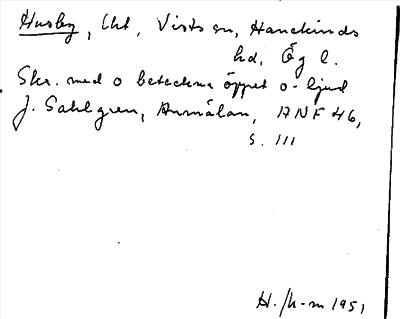 Husby, Uht, Vists sn, Hanekinds
hd, Ög l.
Skr. med o beteckna öppet o-ljud
J. Sahlgren, Anmälan, ANF 46,
s. 111
H./h-m 1951